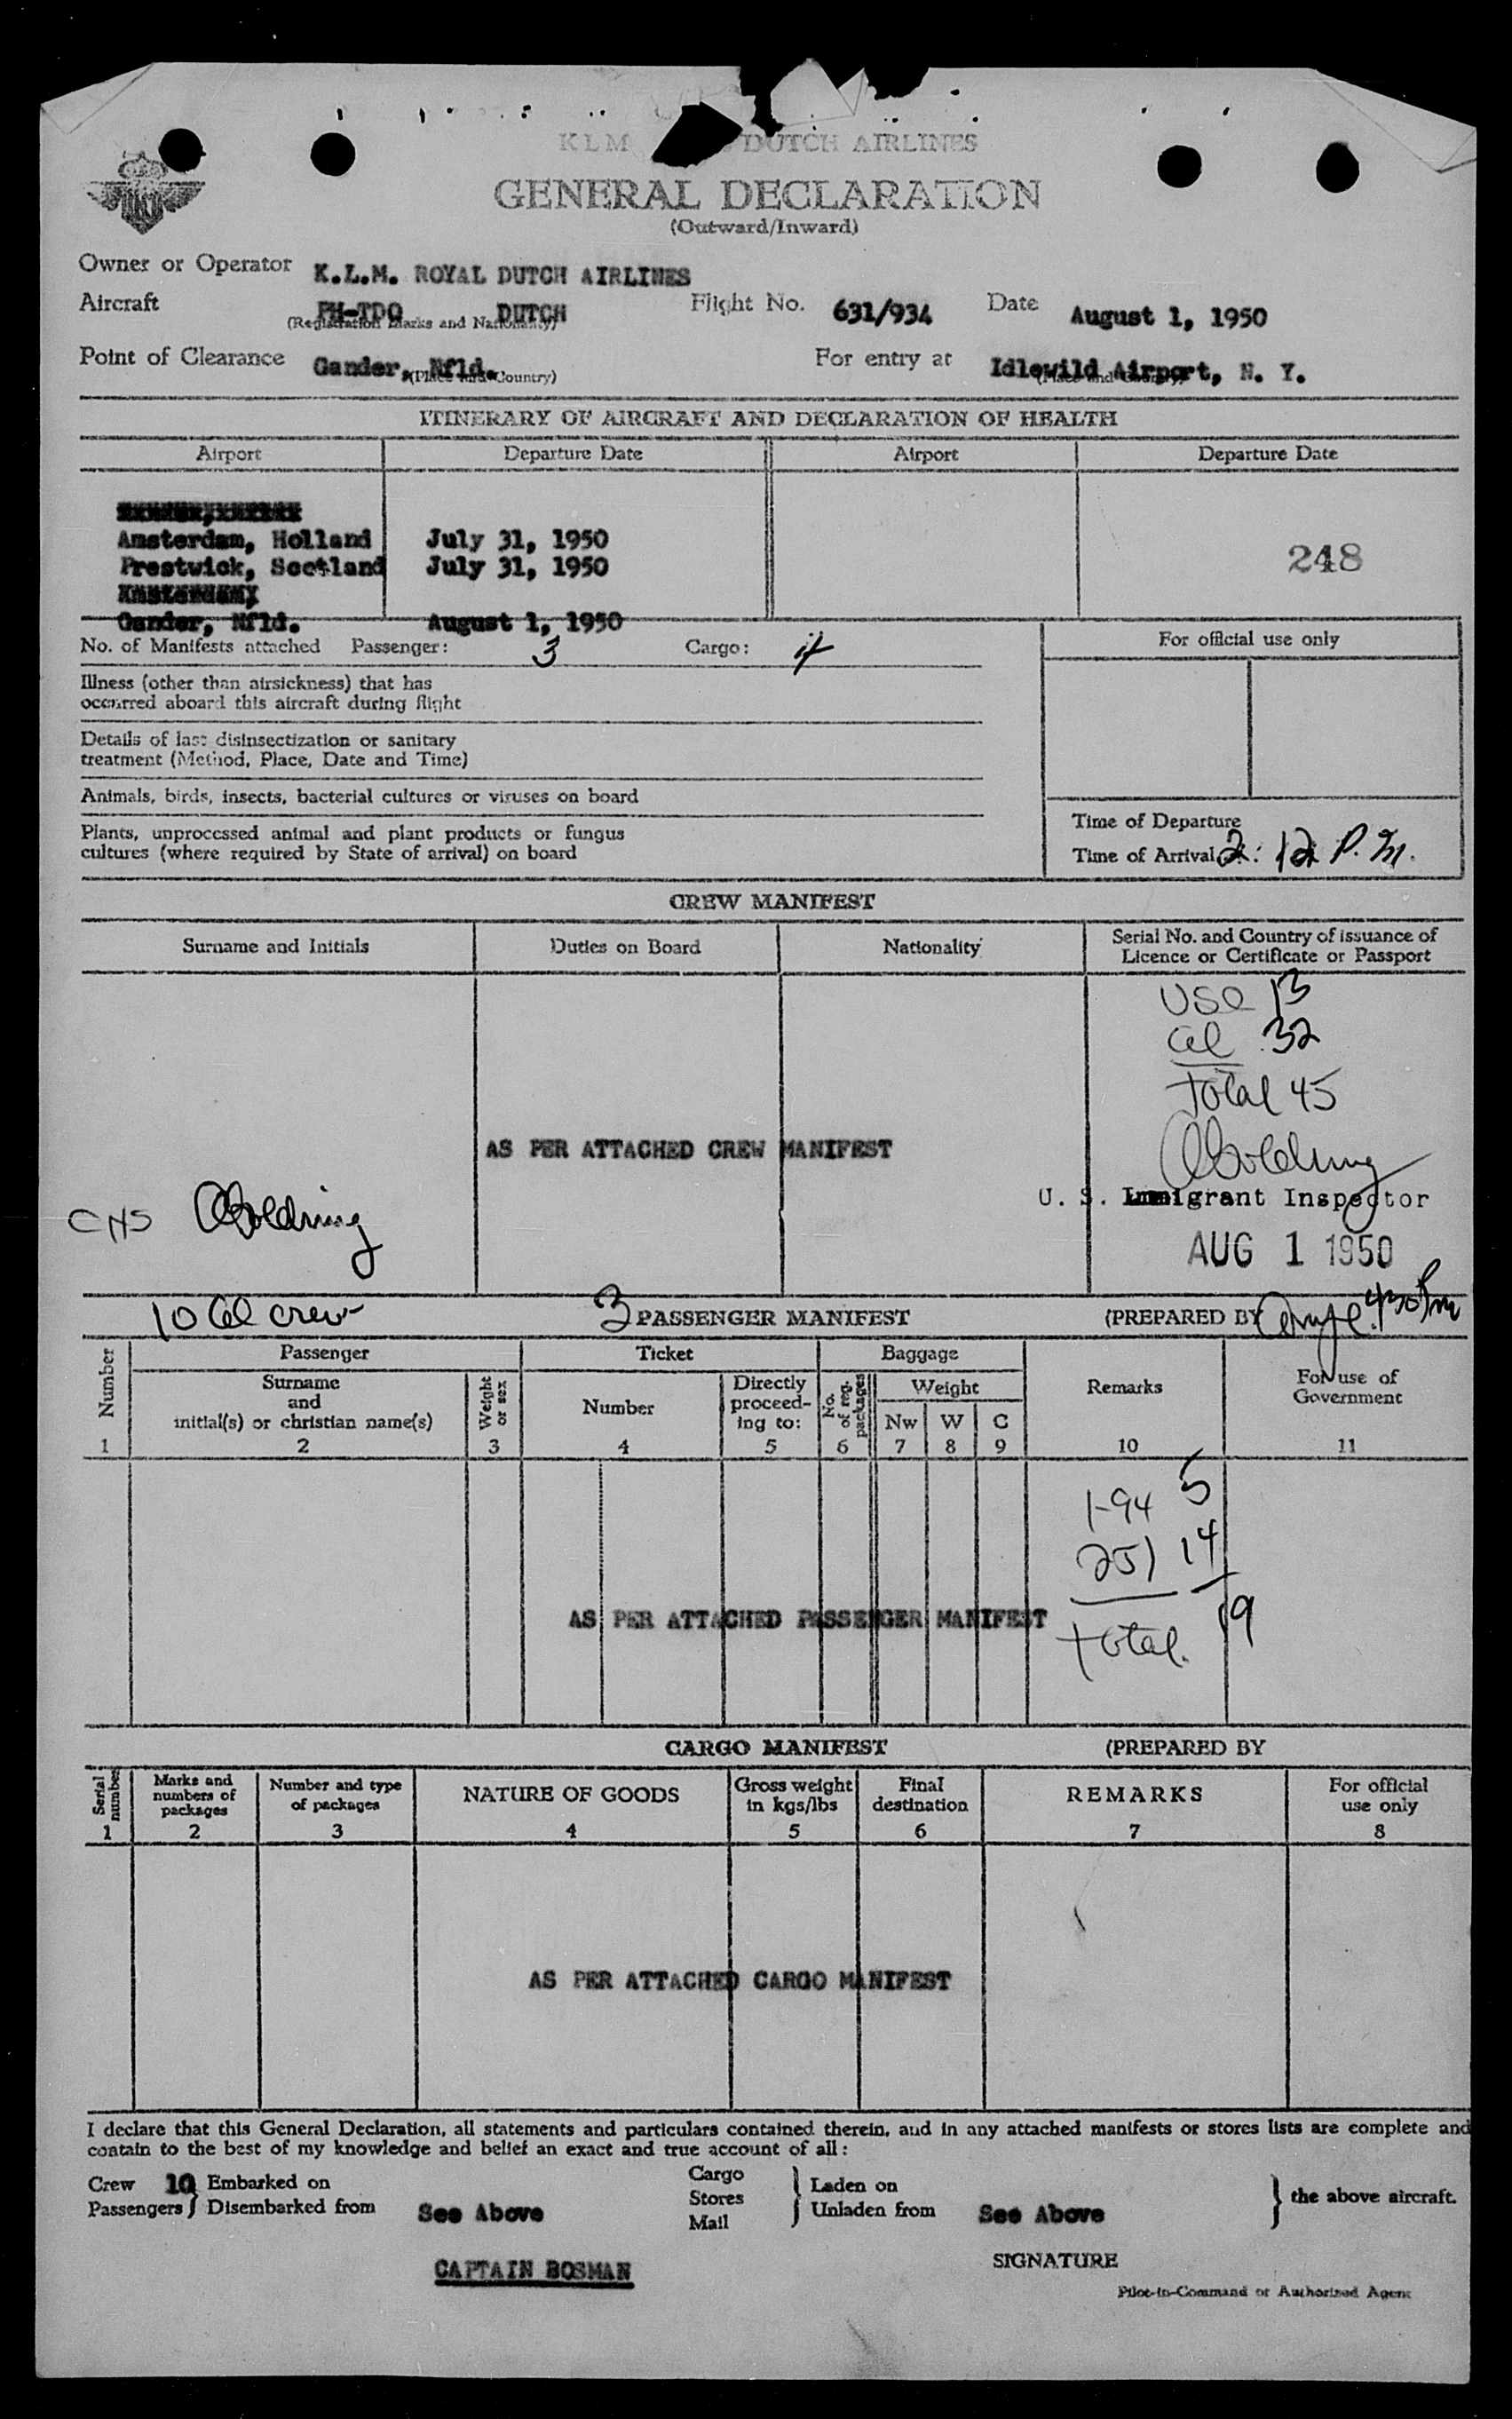 KLM DUTCH AIRLINES
GENERAL DECLARATION
(Outward/Inward)
Owner or Operator K.L.M. ROYAL DUTCH AIRLINES
Aircraft PH-TDQ DUTCH Flight No. 631/934 Date August 1, 1950
(Registration Marks and Nationality)
Point of Clearance Gander, Nfld. For entry at Idlewild Airport, N. Y.
(Place and Country) (Place and Country)
ITINERARY OF AIRCRAFT AND DECLARATION OF HEALTH
Airport Departure Date Airport Departure Date
Amsterdam, Holland July 31, 1950
248
Prestwick, Scotland July 31, 1950
Amsterdam,
Gander, Nfld. August 1, 1950
No. of Manifests attached Passenger: 3 Cargo:
For official use only
Illness (other than airsickness) that has
occurred aboard this aircraft during flight
Details of last disinsectization or sanitary
treatment (Method, Place, Date and Time)
Animals, birds, insects, bacterial cultures or viruses on board
Plants, unprocessed animal and plant products or fungus
cultures (where required by State of arrival) on board
Time of Departure
Time of Arrival 2:12 P.M.
CREW MANIFEST
Surname and Initials Duties on Board Nationality Serial No. and Country of issuance of
Licence or Certificate or Passport
USC 13
al 32
total 45
AS PER ATTACHED CREW MANIFEST
Golding
U. S. Immigrant Inspector
CHS Golding
AUG 1 1950
10 al crew 3 PASSENGER MANIFEST (PREPARED BY 430 Pm
Number Passenger Ticket Baggage Remarks For use of
Government
Surname
and
initial(s) or christian name(s) Weight
or sex Number Directly
proceed-
ing to: No.
of reg.
packages Weight
Nw W C
1 2 3 4 5 6 7 8 9 10 11
I-94 5
257 14
AS PER ATTACHED PASSENGER MANIFEST
total. 19
CARGO MANIFEST (PREPARED BY
Serial
number Marks and
numbers of
packages Number and type
of packages NATURE OF GOODS Gross weight
in kgs/lbs Final
destination REMARKS For official
use only
1 2 3 4 5 6 7 8
AS PER ATTACHED CARGO MANIFEST
I declare that this General Declaration, all statements and particulars contained therein, and in any attached manifests or stores lists are complete and
contain to the best of my knowledge and belief an exact and true account of all:
Crew 10 Embarked on Cargo Laden on
Passengers Disembarked from See Above Stores Unladen from See Above the above aircraft.
Mail
CAPTAIN BOSMAN
SIGNATURE
Pilot-in-Command or Authorized Agent